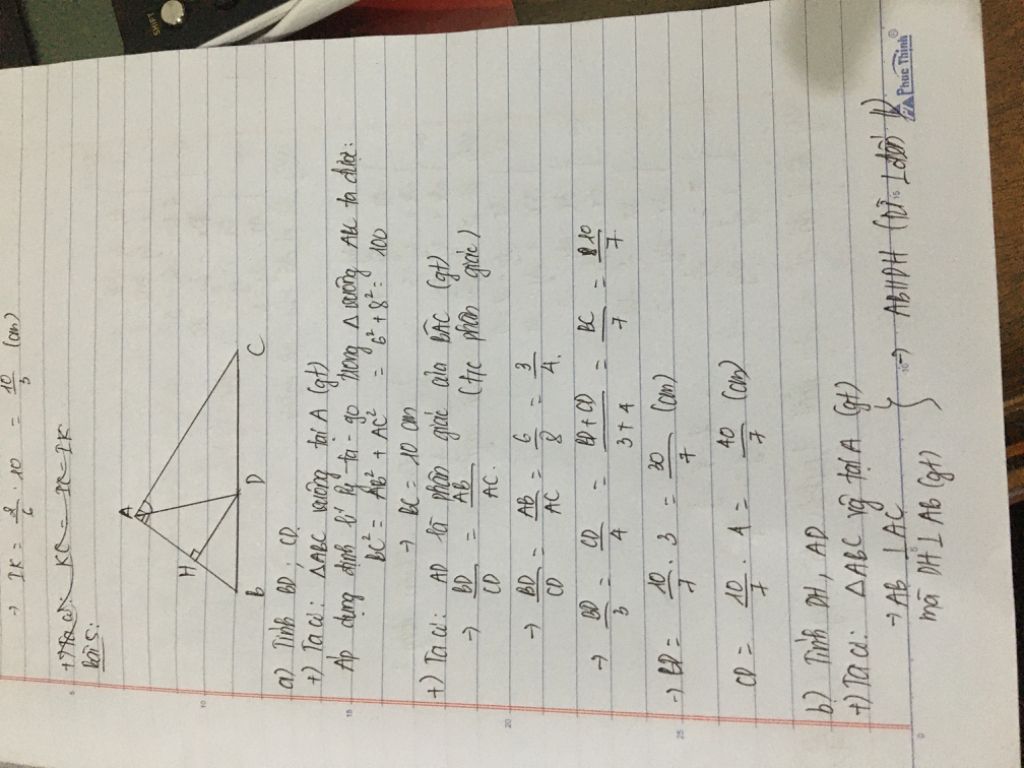 → IK = 2/6 . 10 = 10/3 (cm)
+) Ta có: KC = IC - IK
Bài 5:
A
H
B D C
a) Tính BD; CD
+) Ta có: △ABC vuông tại A (gt)
Áp dụng định lí Py-ta-go trong △ vuông ABC ta được:
BC² = AB² + AC² = 6² + 8² = 100
→ BC = 10 cm
+) Ta có: AD là phân giác của BÂC (gt)
→ BD/CD = AB/AC (t/c phân giác)
→ BD/CD = AB/AC = 6/8 = 3/4.
→ BD/3 = CD/4 = BD + CD/3 + 4 = BC/7 = 10/7
→ BD = 10/7 . 3 = 30/7 (cm)
CD = 10/7 . 4 = 40/7 (cm)
b) Tính DH, AD
+) Ta có: △ABC vg tại A (gt)
→ AB ⊥ AC
mà DH ⊥ AB (gt)
Phúc Thịnh ®
5
10
15
20
25
0